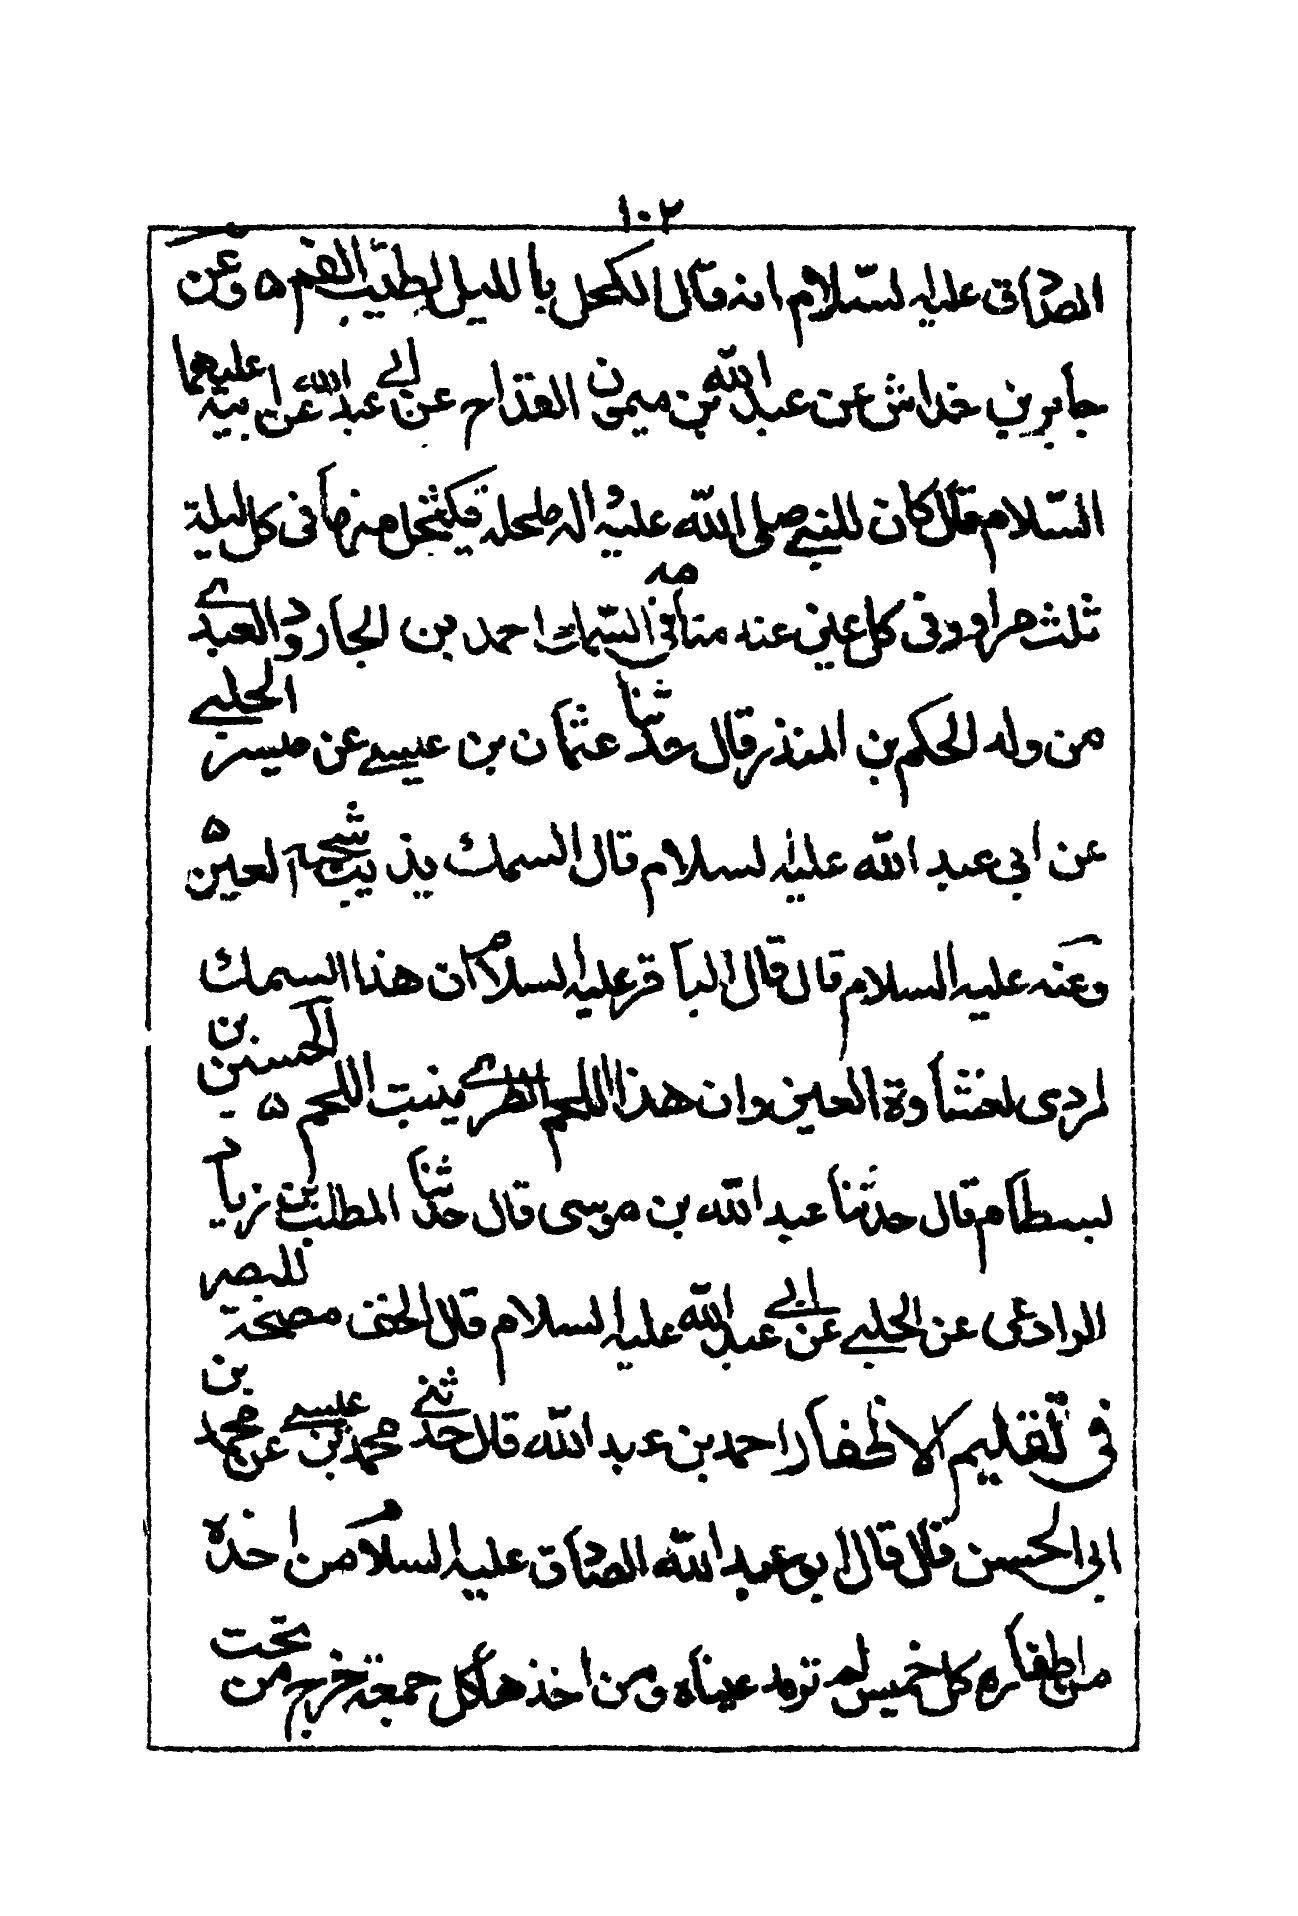 ١٠٢
الصادق عليه السلام انه قال الكحل بالليل يطيب الفم ۵ وعن
جابر بن خداش عن عبد الله بن ميمون القداح عن ابي عبد الله عن ابيه عليهما
السلام قال كان للنبي صلى الله عليه اله مكحله فيكتحل منها في كل ليلة
ثلث مراود في كل عين عند منامه في السمك احمد بن الجارود العبدي
من ولد الحكم بن المنذر قال حدثنا عثمان بن عيسى عن ميسر الحلبي
عن ابي عبد الله عليه السلام قال السمك يذيب شحمة العين ۵
وعنه عليه السلام قال قال الباقر عليه السلام ان هذا السمك
لردى لغشاوة العين وان هذا اللحم الطري ينبت اللحم ۵ الحسن بن
بسطام قال حدثنا عبد الله بن موسى قال حدثنا المطلب بن زياد
الرادعى عن الحلبي عن ابي عبد الله عليه السلام قال الخف مصحة للبصر
في تقليم الاظفار احمد بن عبد الله قال حدثني محمد بن عيسى عن محمد بن
ابي الحسن قال قال ابو عبد الله الصادق عليه السلام من اخذ
من اظفاره كل خميس لم ترمد عيناه ومن اخذها كل جمعة خرج من تحت